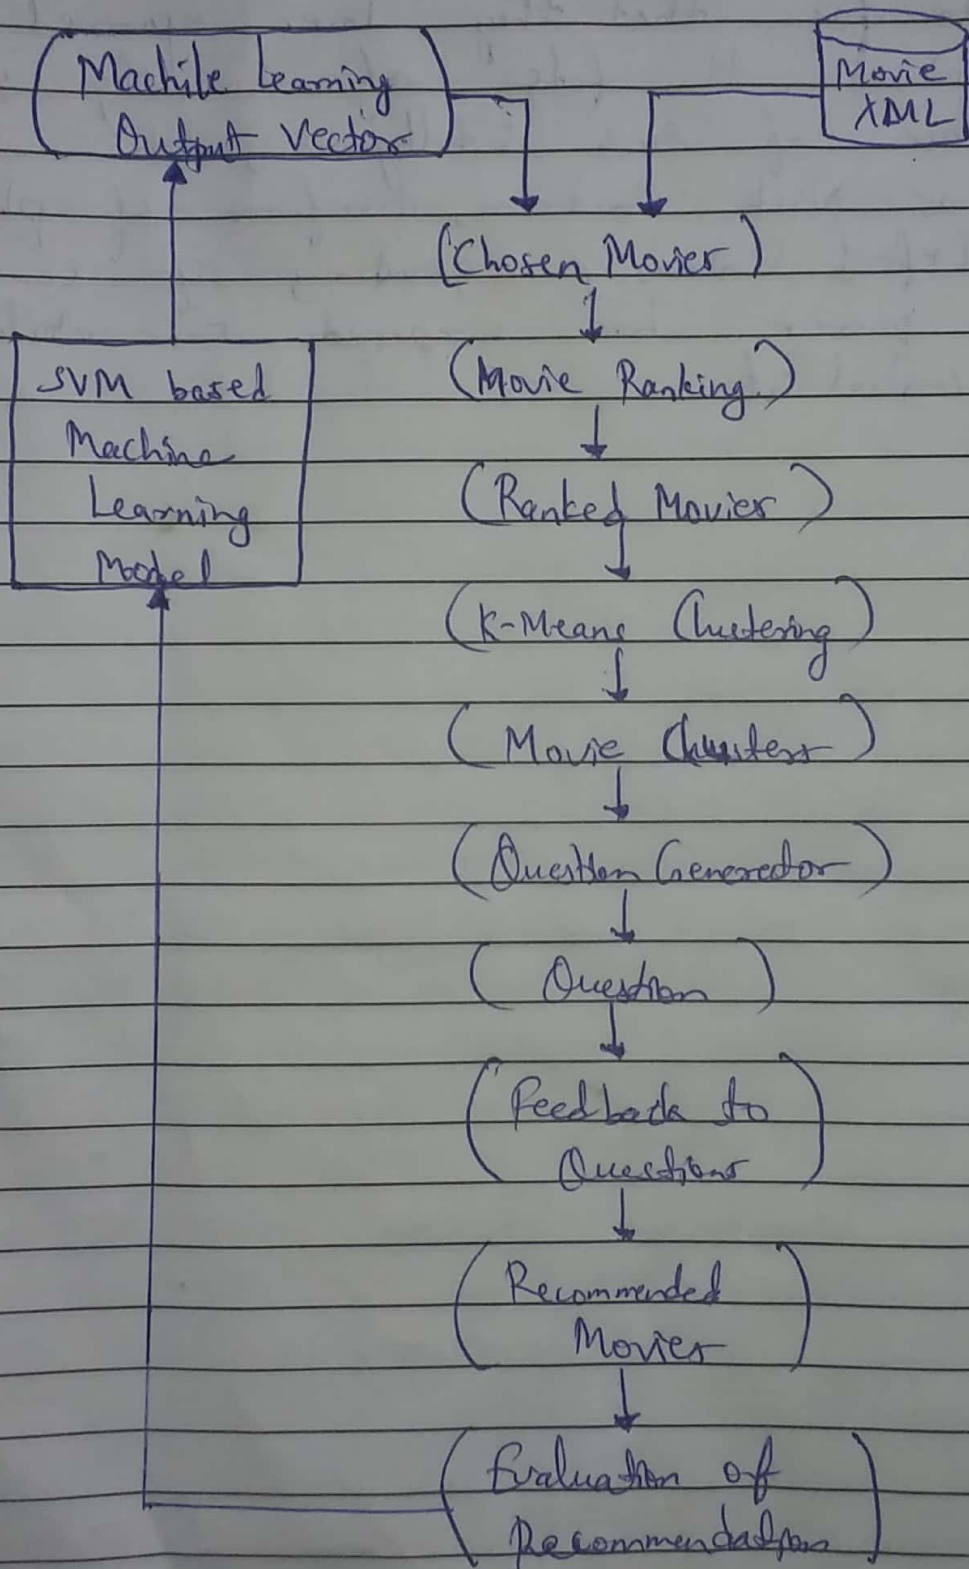 Machile Learning
Output Vector
Movie
XML
(Chosen Movies)
SVM based
Machine
Learning
Model
(Movie Ranking)
(Ranked Movies)
(K-Means Clustering)
(Movie Clusters)
(Question Generator)
(Question)
(Feedback to
Questions)
(Recommended
Movies)
(Evaluation of
Recommendation)